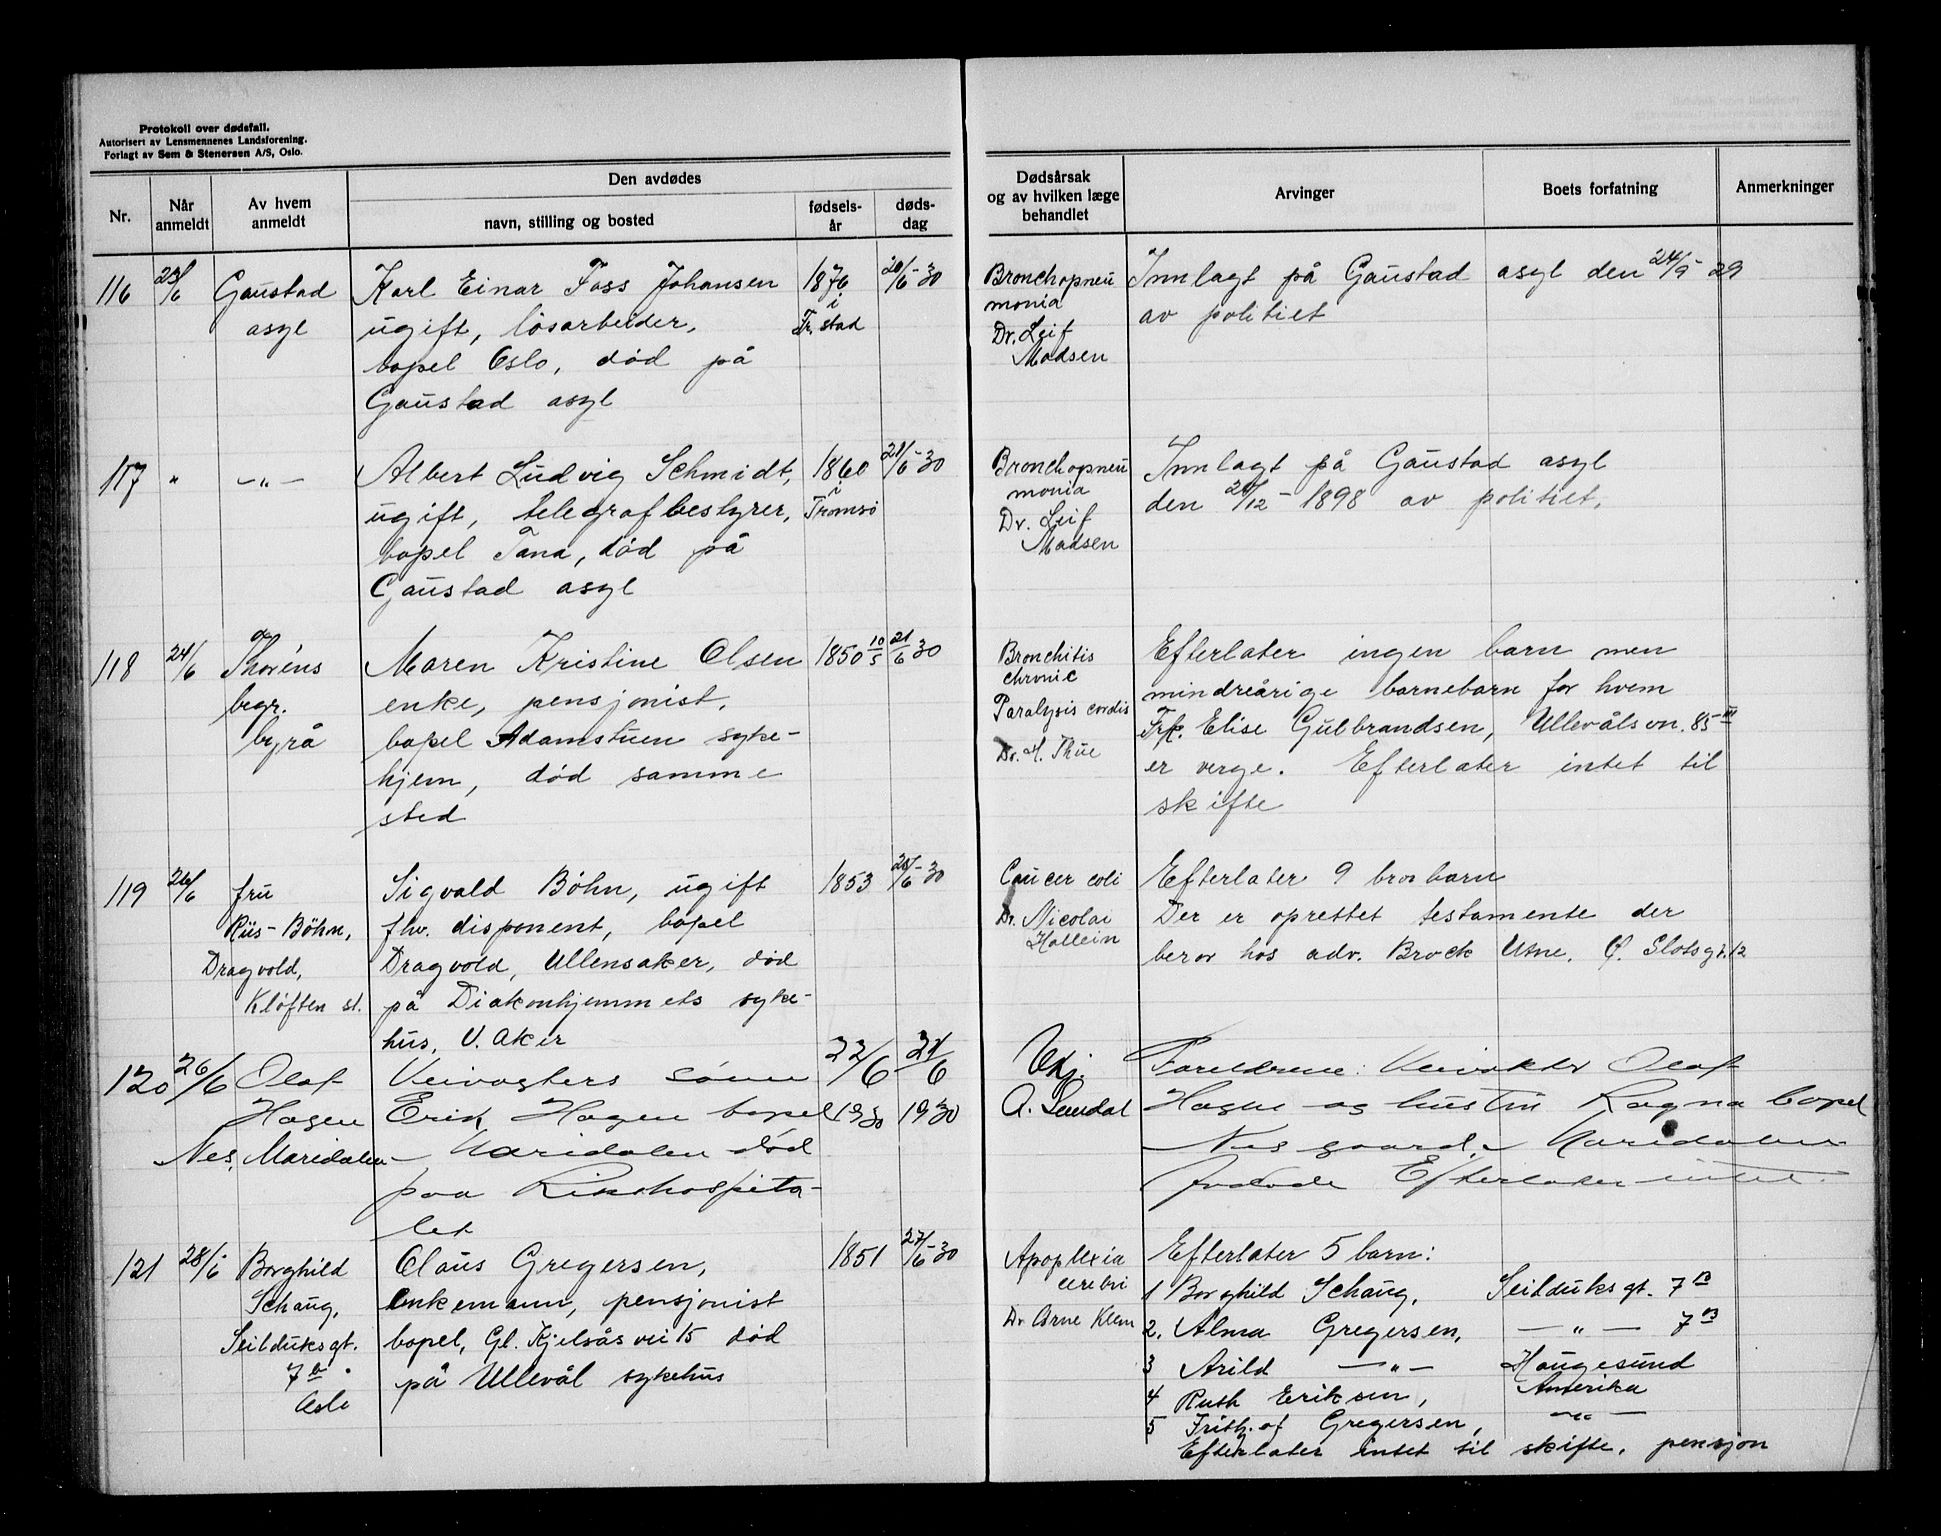 Protokoll over dødsfall.
Autorisert av Lensmennenes Landsforening.
Forlagt av Sem & Stenersen A/S, Oslo.
Nr.
Når anmeldt
Av hvem anmeldt
Den avdødes
navn, stilling og bosted
fødsels-år
døds-dag
Dødsårsak og av hvilken læge behandlet
Arvinger
Boets forfatning
Anmerkninger
116 23/6 Gaustad Karl Einar Foss Johansen 1876 20/6-30
asyl ugift, løsarbeider, i Fr.stad
bopel Oslo, død på
Gaustad asyl
Bronchopneu Innlagt på Gaustad asyl den 24/9-29
monia av politiet
Dr. Leif
Madsen
117 " -"- Albert Ludvig Schmidt, 1860 21/6-30
ugift, telegrafbestyrer, i Tromsø
bopel Tana, død på
Gaustad asyl
Bronchopneu Innlagt på Gaustad asyl
monia den 20/12-1898 av politiet.
Dr. Leif
Madsen
118 24/6 Thoréns Maren Kristine Olsen 1850 10/5 21/6 30
begr. enke, pensjonist,
byrå bopel Adamstuen syke-
hjem, død samme
sted
Bronchitis Efterlater ingen barn men
chronic mindreårige barnebarn for hvem
Paralysis cordis Frk. Elise Gulbrandsen, Ullevålsvn. 85 III
Dr. H. Thue er verge. Efterlater intet til
skifte
119 26/6 fru Sigvald Bøhn, ugift 1853 25/6-30
Riis-Bøhn, fhv. disponent, bopel
Dragvold, Dragvold, Ullensaker, død
Kløften st. på Diakonhjemmets syke-
hus, V. Aker
Cancer coli Efterlater 9 brorbarn
Dr. Nicolai Der er oprettet testamente der
Hallein beror hos adv. Brock Utne, Ø. Slotsgt. 12
120 26/6 Olaf Veivogters sønn 22/6 24/6
Hagen Erik Hagen bopel 1930 1930
Nes, Maridalen Maridalen død
paa Rikshospita-
let
Foreldrene: Veivokter Olaf
A. Sundal Hagen og hustru Ragna bopel
Nes gaard, Maridalen
Avdøde Efterlater intet.
121 28/6 Borghild Claus Gregersen, 1851 27/6-30
Schaug, enkemann, pensjonist
Seilduksgt. bopel, Gl. Kjelsås vei 15 død
7 B på Ullevål sykehus
Oslo
Apoplexia Efterlater 5 barn:
cerebri 1 Borghild Schaug, Seilduksgt. 7 B
Dr Arne Klem 2. Alma Gregersen, -"- 7 B
3 Arild -"- Haugesund
4 Ruth Eriksen, Amerika
5 Frithjof Gregersen, -"-
Efterlater intet til skifte, pensjon